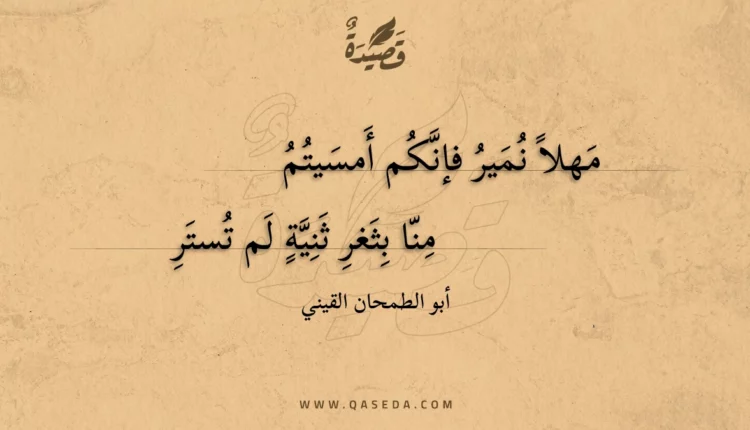 قَصِيدَةٌ
مَهلاً نُمَيرُ فإنَّكُم أَمسَيتُمُ
مِنّا بِثَغرِ ثَنِيَّةٍ لَم تُستَرِ
أبو الطمحان القيني
WWW.QASEDA.COM